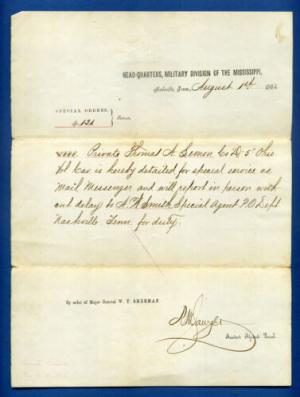 HEAD-QUARTERS, MILITARY DIVISION OF THE MISSISSIPPI,
Nashville, Tenn., August 1st 1864
SPECIAL ORDERS,
Private Thomas A. Lemon Co D 5" Ohio
Vol Cav is hereby detailed for special service as
Mail Messenger and will report in person with
out delay to A. H. Smith Special Agent P.O. Dept
Nashville Tenn for duty.
By order of Major General W. T. SHERMAN
Assist Adjut Genl.